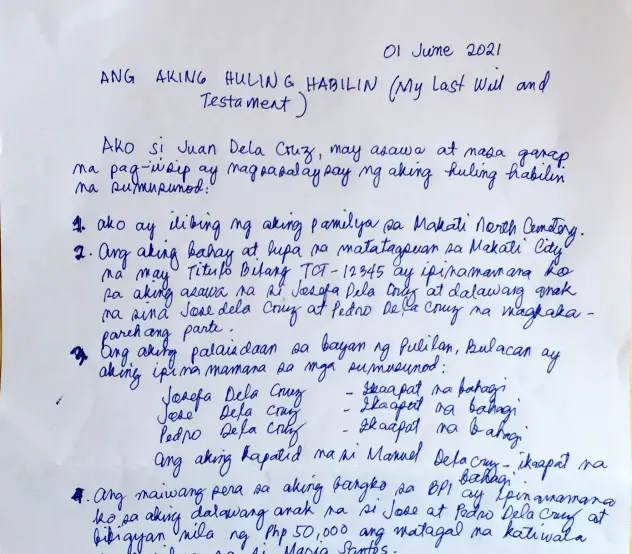 01 June 2021
ANG AKING HULING HABILIN (My Last Will and
Testament)
Ako si Juan Dela Cruz, may asawa at nasa ganap
na pag-iisip ay nagsasalaysay ng aking huling habilin
na sumusunod:
1. ako ay ilibing ng aking pamilya sa Makati North Cemetery.
2. Ang aking bahay at lupa na matatagpuan sa Makati City
na may Titulo Bilang TCT-12345 ay ipinamamana ko
sa aking asawa na si Josefa Dela Cruz at dalawang anak
na sina Jose dela Cruz at Pedro Dela Cruz na magkaka-
parehang parte.
3. Ang aking palaisdaan sa bayan ng Pulilan, Bulacan ay
aking ipinamamana sa mga sumusunod:
Josefa Dela Cruz - Ikaapat na bahagi
Jose Dela Cruz - Ikaapat na bahagi
Pedro Dela Cruz - Ikaapat na bahagi
Ang aking kapatid na si Manuel Dela Cruz - ikaapat na
bahagi.
4. Ang maiwang pera sa aking bangko sa BPI ay ipinamamana
ko sa aking dalawang anak na si Jose at Pedro Dela Cruz at
bibigyan nila ng Php 50,000 ang matagal na katiwala
na si Maria Santos.